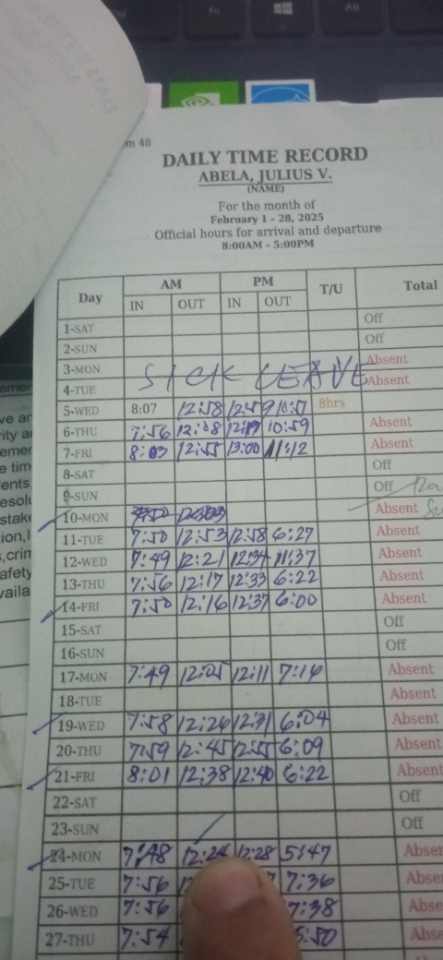 m 48
DAILY TIME RECORD
ABELA, JULIUS V.
(NAME)
For the month of
February 1 - 28, 2025
Official hours for arrival and departure
8:00AM - 5:00PM
Day AM PM T/U Total
IN OUT IN OUT
1-SAT Off
2-SUN Off
3-MON Absent
SICK LEAVE
4-TUE Absent
5-WED 8:07 12:58 12:59 8hrs
6-THU 7:56 12:19 10:59 Absent
7-FRI 8:03 12:55 13:00 11:12 Absent
8-SAT Off
9-SUN Off
10-MON Absent
11-TUE 7:50 12:53 12:58 6:27 Absent
12-WED 7:49 12:21 12:34 11:37 Absent
13-THU 7:56 12:17 12:33 6:22 Absent
14-FRI 7:50 12:16 12:37 6:00 Absent
15-SAT Off
16-SUN Off
17-MON 7:49 12:05 12:11 7:16 Absent
18-TUE Absent
19-WED 7:58 12:26 12:31 6:04 Absent
20-THU 7:59 12:45 12:55 6:09 Absent
21-FRI 8:01 12:38 12:40 6:22 Absent
22-SAT Off
23-SUN Off
24-MON 7:48 12:24 12:28 5:47 Abse
25-TUE 7:56 7:36 Abse
26-WED 7:56 7:38 Abse
27-THU 7:54 5:50 Abse